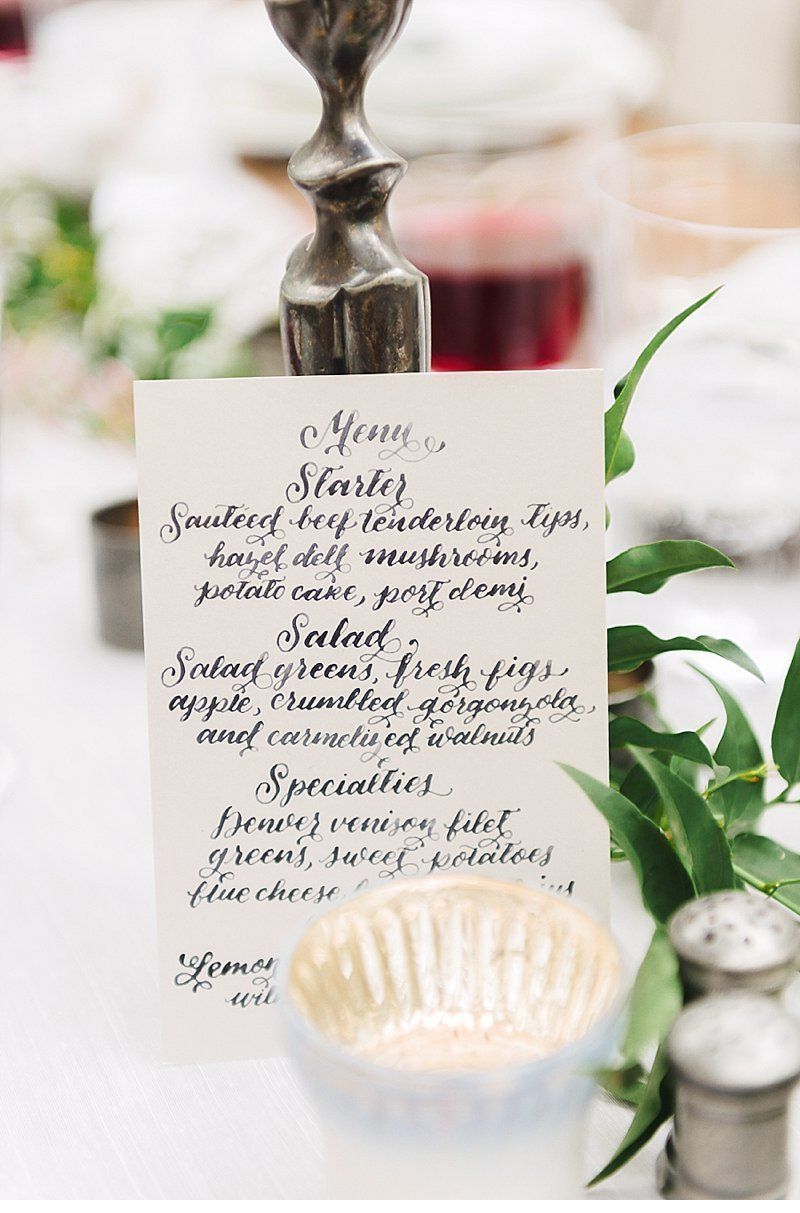 Menu
Starter
Sauteed beef tenderloin tips,
hazel dell mushrooms,
potato cake, port demi
Salad
Salad greens, fresh figs
apple, crumbled gorgonzola,
and carmelized walnuts
Specialties
Denver venison filet
greens, sweet potatoes
blue cheese
Lemon